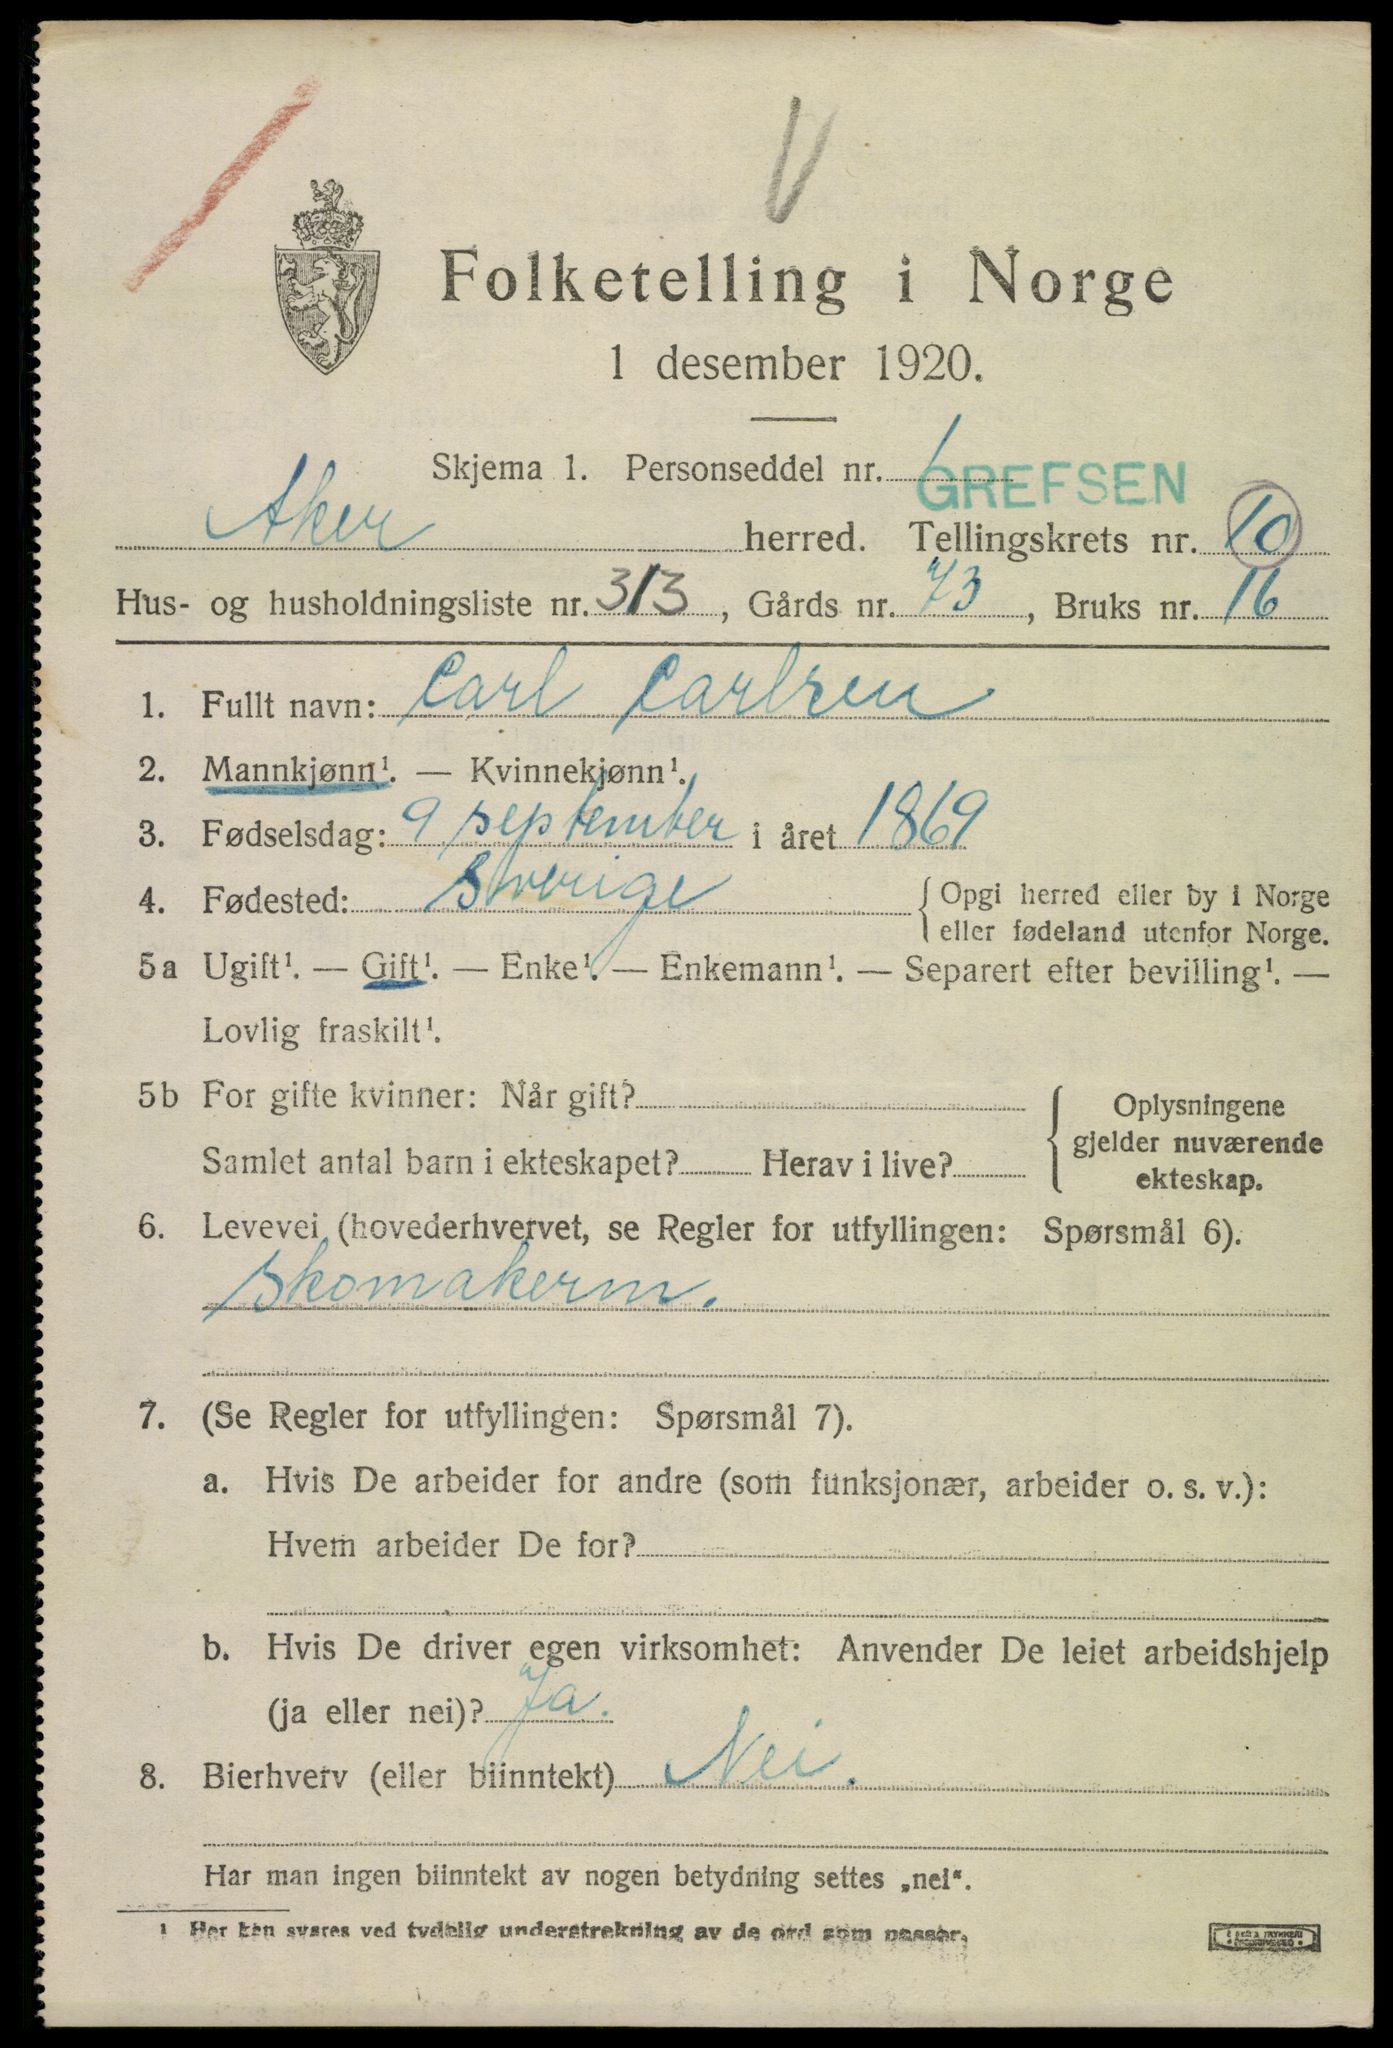 Folketelling i Norge
1 desember 1920.
Skjema 1. Personseddel nr. 1
GREFSEN
Aker herred. Tellingskrets nr. 10
Hus- og husholdningsliste nr. 313, Gårds nr. 73, Bruks nr. 16
1. Fullt navn: Carl Carlsen
2. Mannkjønn¹. — Kvinnekjønn¹.
3. Fødselsdag: 9 september i året 1869
4. Fødested: Sverige { Opgi herred eller by i Norge
eller fødeland utenfor Norge.
5a Ugift¹. — Gift¹. — Enke¹. — Enkemann¹. — Separert efter bevilling¹. —
Lovlig fraskilt¹.
5b For gifte kvinner: Når gift?
Samlet antal barn i ekteskapet? Herav i live?
{ Oplysningene
gjelder nuværende
ekteskap.
6. Levevei (hovederhvervet, se Regler for utfyllingen: Spørsmål 6).
Skomakerm.
7. (Se Regler for utfyllingen: Spørsmål 7).
a. Hvis De arbeider for andre (som funksjonær, arbeider o. s. v.):
Hvem arbeider De for?
b. Hvis De driver egen virksomhet: Anvender De leiet arbeidshjelp
(ja eller nei)? Ja.
8. Bierhverv (eller biinntekt) Nei.
Har man ingen biinntekt av nogen betydning settes „nei“.
1 Her kan svares ved tydelig understrekning av de ord som passer.